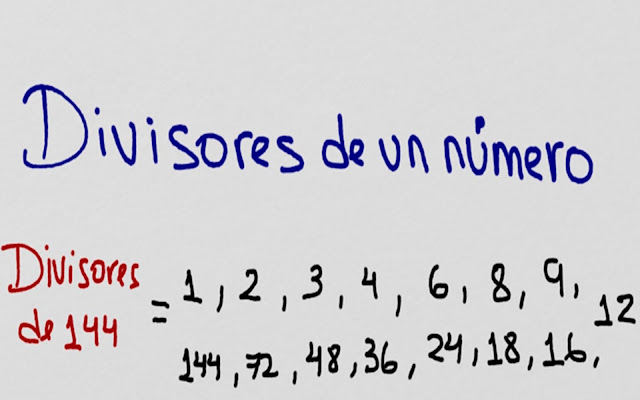 Divisores de un número
Divisores
de 144
= 1, 2, 3, 4, 6, 8, 9, 12
144, 72, 48, 36, 24, 18, 16,